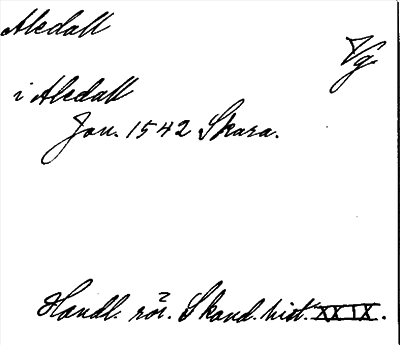 Aledall
Vg
i Aledall
Jon. 1542 Skara.
Handl. rör. Skand. hist. XXIX.